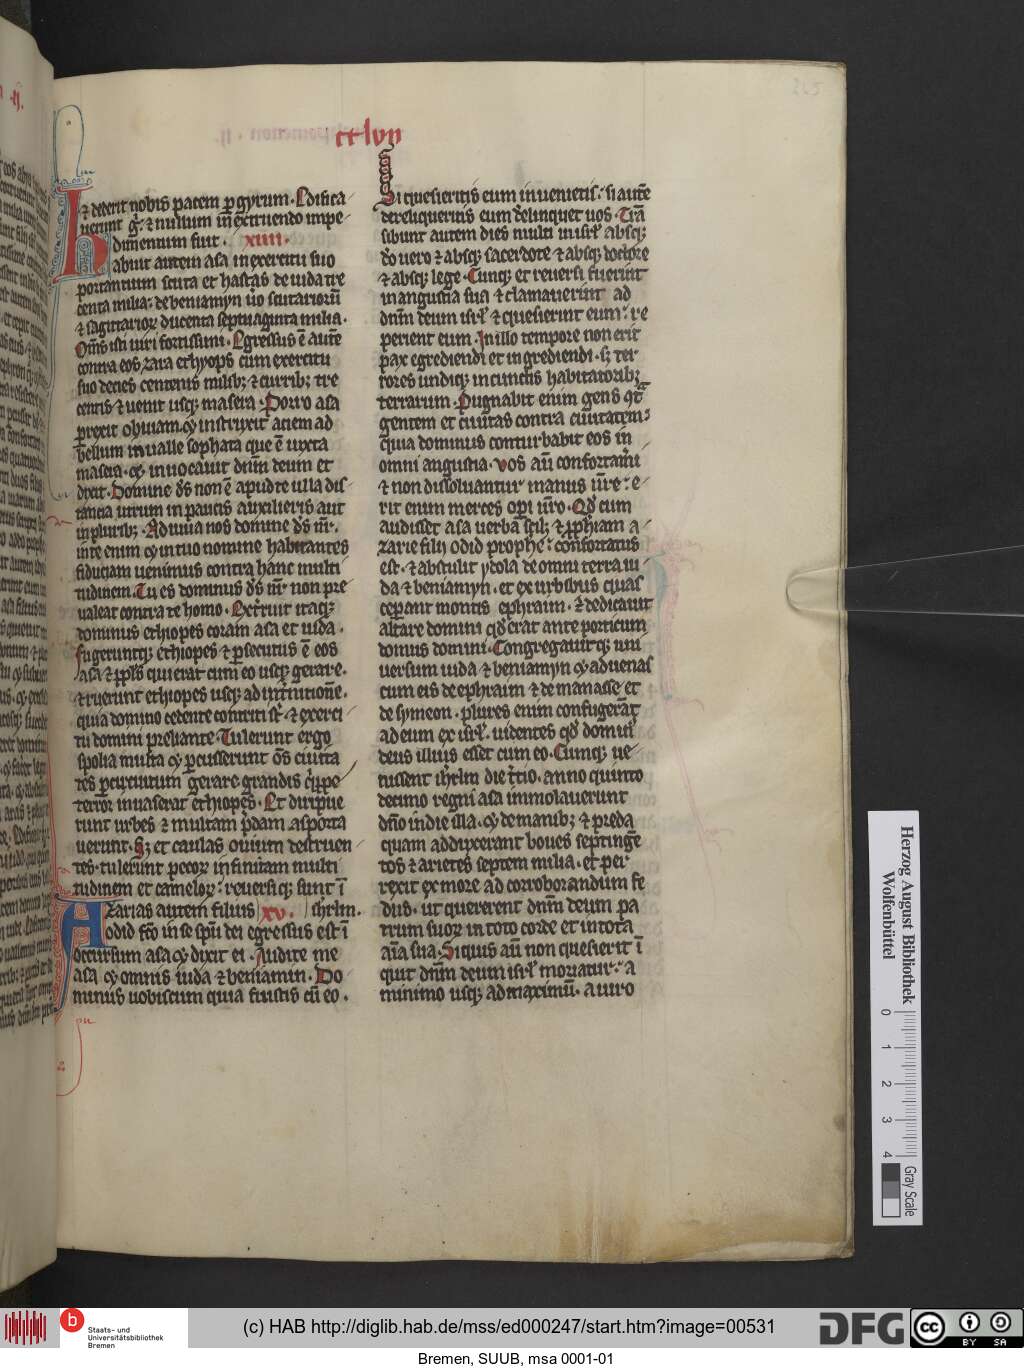 cclvii
et dederit nobis pacem ꝑ gyrum. Edifica
uerunt gͥ. ⁊ nullum in extruendo impe
dimentum fuit. xiiii.
Habuit autem asa in exercitu suo
portantium scuta et hastas de iuda tre
centa milia: de beniamyn u̾o scutarioru̅
⁊ sagittarioꝝ ducenta septuaginta milia.
Om̅s isti uiri fortissimi. Egressus e̅ aute̅
contra eos zara ethyops cum exercitu
suo decies centenis milibꝫ ⁊ curribꝫ tre
centis ⁊ uenit usqꝫ masera. Porro asa
ꝑrexit obuiam ei ⁊ instruxit aciem ad
bellum in ualle sophata que e̅ iuxta
masera. ⁊ inuocauit dn̅m deum et
dixit. Domine ds̅ non e̅ apud te ulla dis
tancia utrum in paucis auxilieris aut
in pluribꝫ. Adiuua nos domine ds̅ nr̅.
in te enim ⁊ in tuo nomine habentes
fiduciam uenimus contra hanc multi
tudinem. Tu es dominus ds̅ nr̅ non pre
ualeat contra te homo. Exterruit itaqꝫ
dominus ethiopes coram asa et iuda.
fugeruntqꝫ ethiopes ⁊ ꝑsecutus e̅ eos
asa ⁊ ppl̅s qui erat cum eo usqꝫ gerare.
⁊ ruerunt ethiopes usqꝫ ad int̾nitione̅.
quia domino cedente contriti st̅. ⁊ exerci
tu domini preliante. Tulerunt ergo
spolia multa ⁊ ꝑcusserunt om̅s ciuita
tes ꝑ circuitum gerare grandis quippe
terror inuaserat ethiopes. Et diripue
runt urbes ⁊ multam p̾dam asporta
uerunt. Sꝫ et caulas ouium destruen
tes. tulerunt pecoꝝ infinitam multi
tudinem et cameloꝝ: reuersiqꝫ sunt i̅
Azarias autem filius xv. ihrl̅m.
odid fc̅o in se sp̅u dei egressus est i̅
occursum asa ⁊ dixit ei. Audite me
asa ⁊ omnis iuda ⁊ beniamin. Do
minus uobiscum quia fuistis cu̅ eo.
Si quesieritis eum inuenietis: si aute̅
dereliqueritis eum derelinquet uos. Tra̅
sibunt autem dies multi in isrl̅ absqꝫ
do̅ uero ⁊ absqꝫ sacerdote ⁊ absqꝫ doctore
⁊ absqꝫ lege. Cumqꝫ et reuersi fuerint
in angustia sua ⁊ clamauerint ad
dn̅m deum isrl̅ ⁊ quesierint eum: re
perient eum. In illo tempore non erit
pax egrediendi et ingrediendi. sꝫ ter
rores undiqꝫ in cunctis habitatoribꝫ
terrarum. Pugnabit enim gens 9t̾
gentem et ciuitas contra ciuitatem:
quia dominus conturbabit eos in
omni angustia. Vos au̅ confortami̅
⁊ non dissoluantur manus ur̅e: e
rit enim merces op̾i ur̅o. Qd̅ cum
audisset asa uerba scil; ⁊ ꝓphiam a
zarie filij odid prophe: confortatus
est. ⁊ abstulit ydola de omni terra iu
da ⁊ beniamyn. et ex urbibus quas
ceperant montis ephraim. ⁊ dedicauit
altare domini qd̅ erat ante porticum
domus domini. Congregauitqꝫ uni
uersum iuda ⁊ beniamyn ⁊ aduenas
cum eis de ephraim ⁊ de manasse et
de symeon. plures enim confugera̅t
ad eum ex isrl̅. uidentes qd̅ domin̾
deus illius esset cum eo. Cumqꝫ ue
nissent ihrl̅m die t̾tio. anno quinto
decimo regni asa immolauerunt
dn̅o in die illa. ⁊ de manibꝫ ⁊ preda
quam adduxerant boues septinge̅
tos ⁊ arietes septem milia. et per
rexit ex more ad corroborandum fe
dus. ut quererent dn̅m deum pa
trum suoꝝ in toto corde et in tota
ai̅a sua. Siquis au̅ non quesierit i̅
quit dn̅m deum isrl̅ moriatur: a
minimo usqꝫ ad maximu̅. a uiro
Herzog August Bibliothek
Wolfenbüttel
0 1 2 3 4
Gray Scale
b
Staats- und
Universitätsbibliothek
Bremen
(c) HAB http://diglib.hab.de/mss/ed000247/start.htm?image=00531
DFG
cc
BY SA
Bremen, SUUB, msa 0001-01